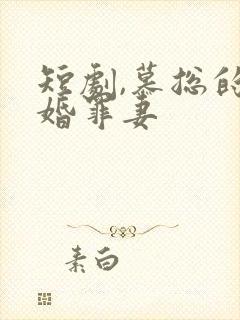 短劇,慕总的
婚罪妻
素白